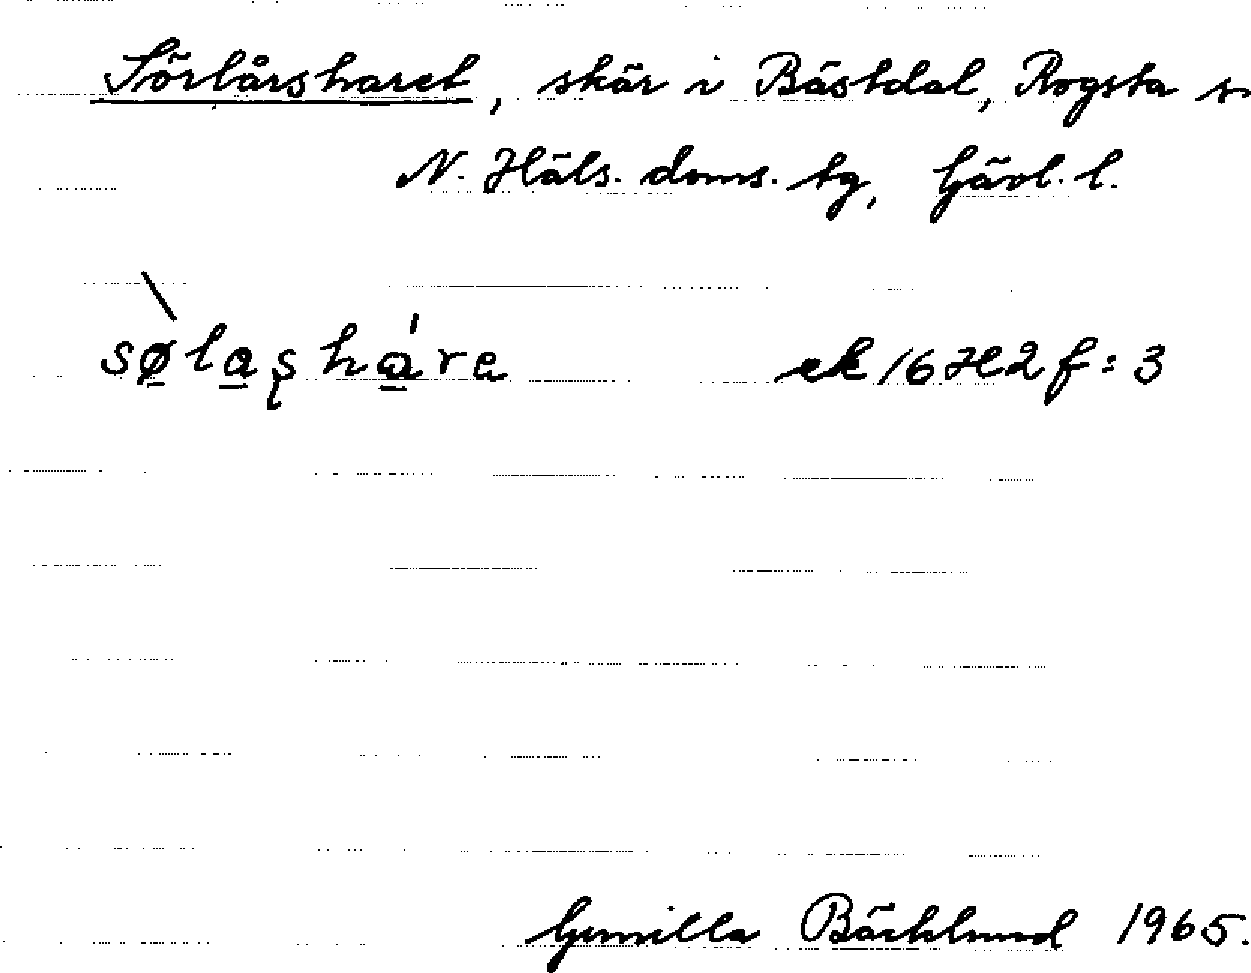 Sörlårsharet, skär i Bästdal, Rogsta s
N. Häls. doms. tg, Gävl. l.
sø̱la̱ʂ há̱re ek 16H2f:3
Gunilla Bäcklund 1965.